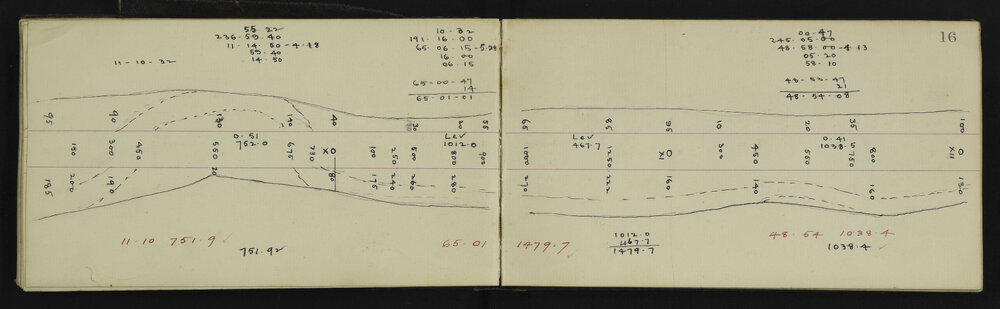 55-22
236-59-40
11-14-50-4-48
59-40
14-50
11-10-32
10-32
191-16-00
65-06-15-5-28
16-00
06-15
65-00-47
14
65-01-01
95
90
130
140
40
30
20
55
0.51
752.0
Lev
1012.0
150
300
450
550
675
730
XO
100
250
500
800
900
185
200
190
20
80
175
240
260
280
11-10 751.9 ✓
751.92
65.01 1479.7 ✓
16
00-47
245-05-00
48-58-00-4-13
05-20
58-10
48-53-47
21
48-54-08
65
85
95
10
20
35
100
Lev
467.7
0.41
1038.5
1000
1250
XIO
300
450
550
750
800
XIIO
270
222
160
140
160
130
1012.0
467.7
1479.7
48-54 1038.4
1038.4 ✓